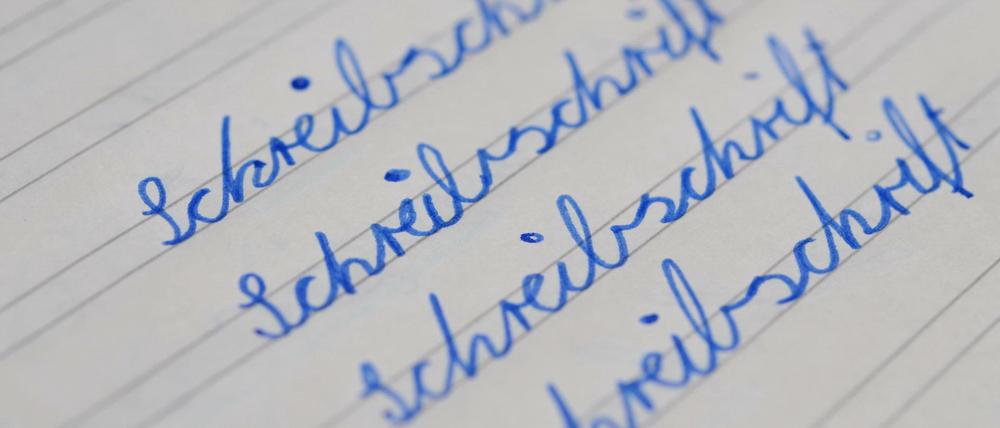 Schreibsch
Schreibschrift
Schreibschrift
hreibschrift